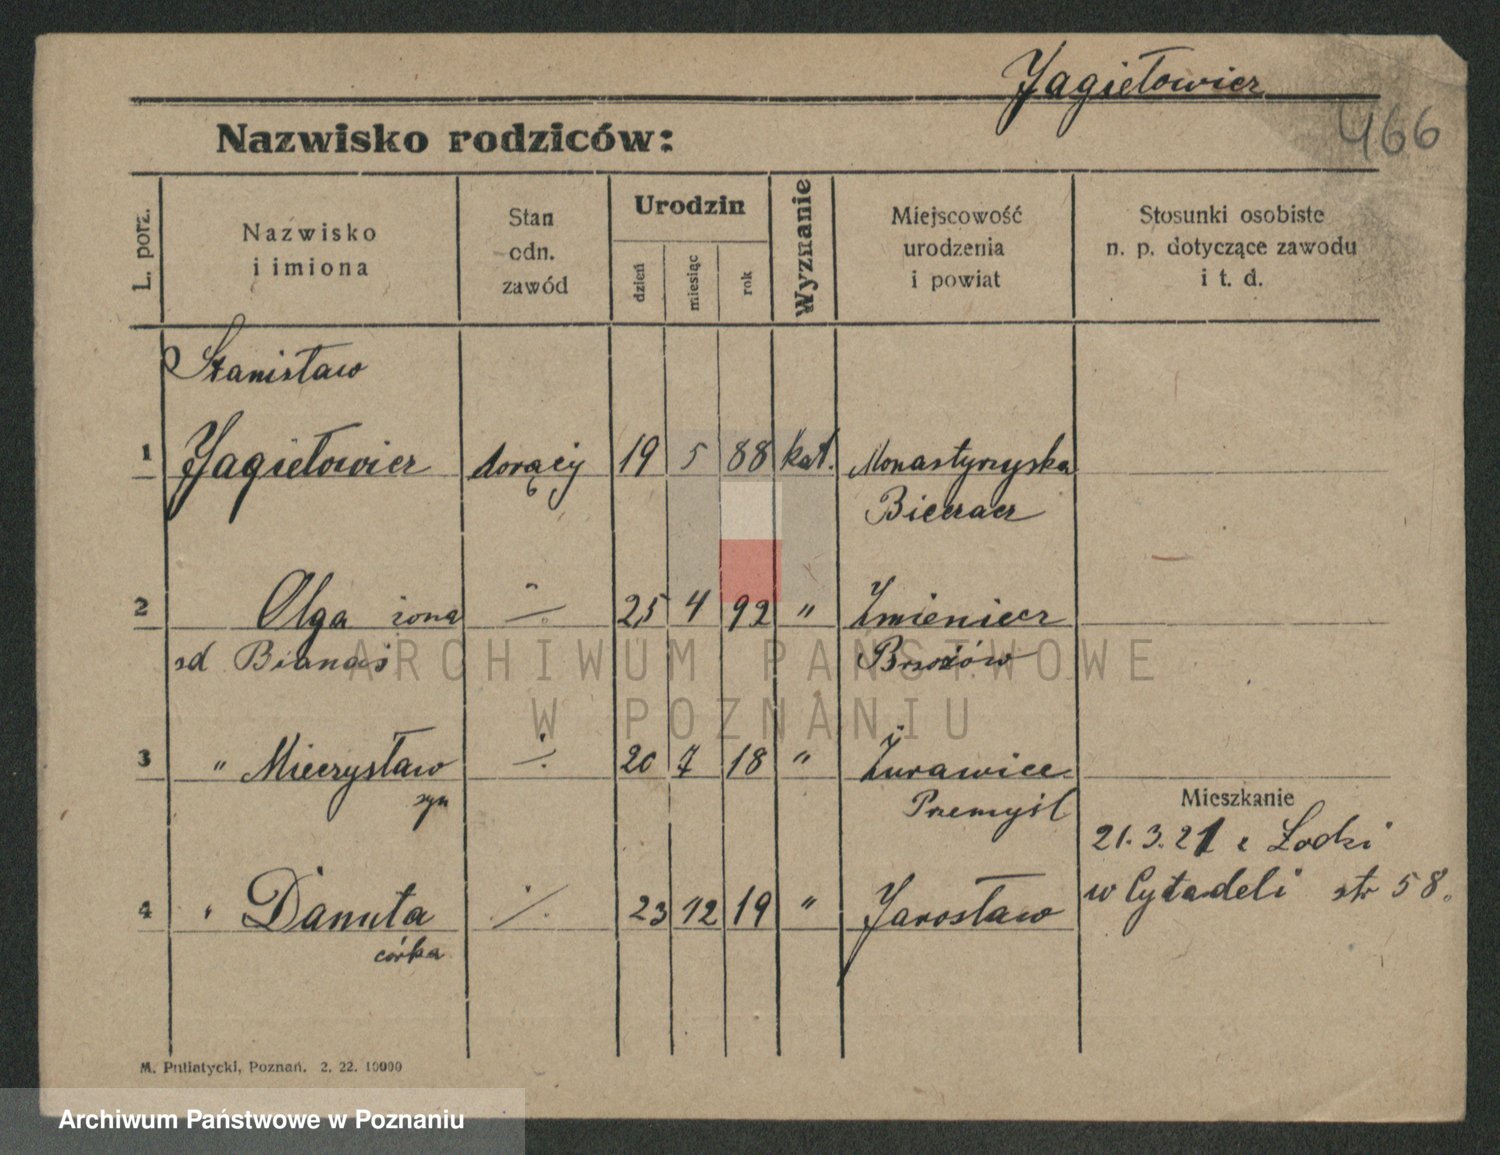 Jagiełowicz
466
Nazwisko rodziców:
L. porz.
Nazwisko
i imiona
Stan
odn.
zawód
Urodzin
dzień
miesiąc
rok
Wyznanie
Miejscowość
urodzenia
i powiat
Stosunki osobiste
n. p. dotyczące zawodu
i t. d.
Stanisław
1 Jagiełowicz dorący 19 5 88 kat. Monastyrzyska
Bieczacz
2 Olga żona ./. 25 4 92 " Zmieniecz
Bianaś Brzozów
3 " Mieczysław ./. 20 7 18 " Żurawice
syn Przemyśl
Mieszkanie
21.3.21 z Łodzi
w Cytadeli str 58.
4 " Danuta ./. 23 12 19 " Jarosław
córka
M. Putiatycki, Poznań. 2. 22. 10000
ARCHIWUM PAŃSTWOWE
W POZNANIU
Archiwum Państwowe w Poznaniu